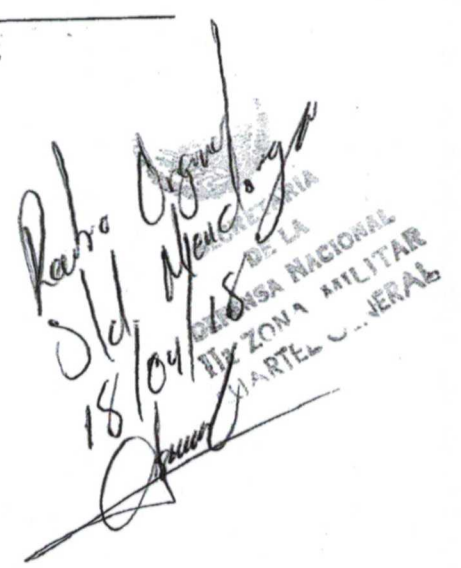 Recibo Original
Sld. Mendoza
18/04/18
SECRETARIA
DE LA
DEFENSA NACIONAL
ZONA MILITAR
CUARTEL GENERAL